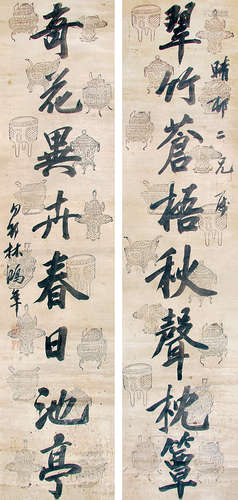 翠竹蒼梧秋聲枕簟
晴邨二兄屬
奇花異卉春日池亭
弟林鴻年